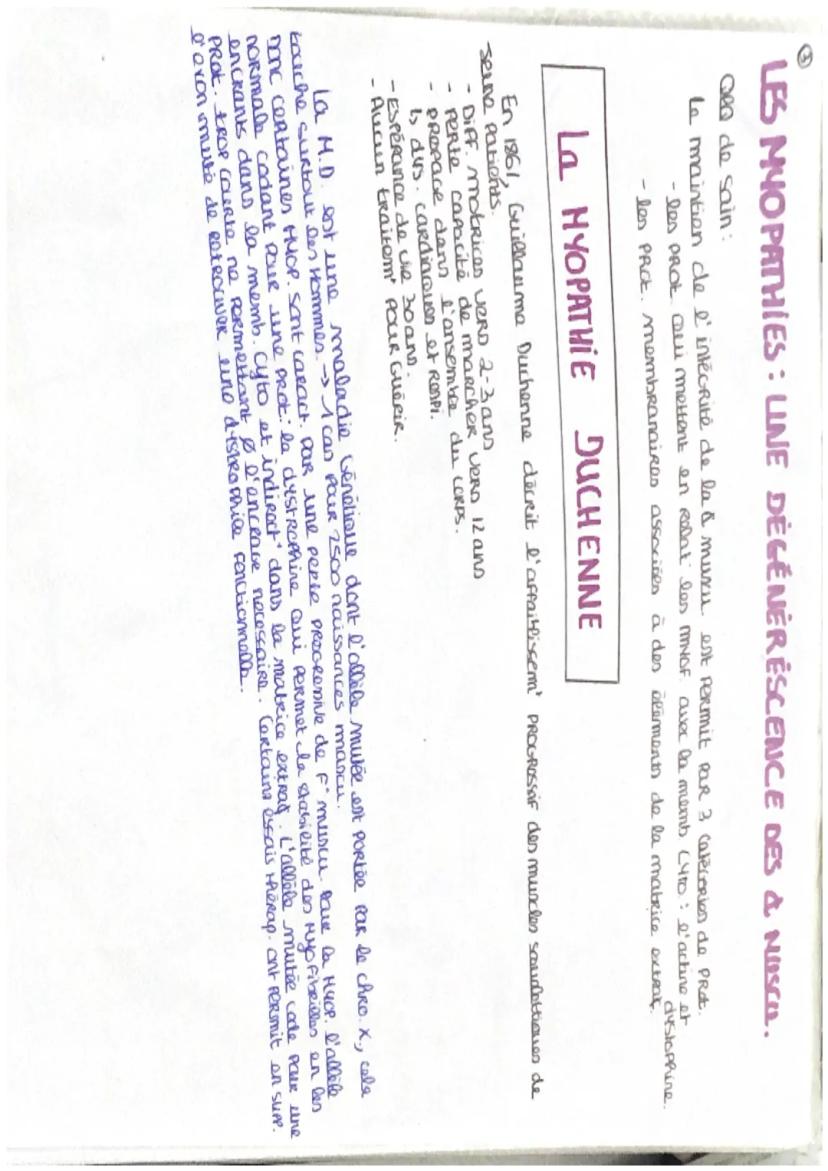 ③
LES MYOPATHIES : UNE DÉGÉNÉRÉSCENCE DES & MUSCU.
de sain :
Le maintien de l'intégrité de la & muscu est permit par 3 catégories de prot.
- les prot. qui mettent en relat° les myof. avec la memb cyto : l'actine et
dystophine.
- les prot. membranaires associées à des éléments de la matrice extra&.
La MYOPATHIE DUCHENNE
En 1861, Guillaume Duchenne décrit l'affaiblissem^t progressif des muscles squelettiques de
jeunes patients.
- Diff. motrices vers 2-3 ans
- perte capacité de marcher vers 12 ans
- propage dans l'ensemble du corps.
↳ dys. cardiaques et respi.
- Espérance de vie 30 ans.
- Aucun traitem^t pour guérir.
La M.D. est une maladie génétique dont l'allèle mutée est portée par le chro. X, cela
touche surtout les hommes. → 1 cas pour 2500 naissances mascu.
Donc certaines myop. sont caract. par une perte progressive de f° muscu. Pour la Myop. l'allèle
normale codant pour une prot. la dystrophine qui permet la stabilité des myofibrilles en les
encrants dans la memb. cyto et indirect^t dans la matrice extra&. L'allèle mutée code pour une
prot. trop courte ne permettant ∅ l'ancrage necessaire. Certains essais thérap. ont permit en supp.
l'exon muté de retrouver une dystrophie fonctionnelle.